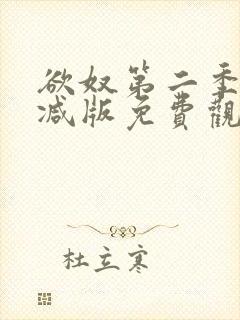 欲奴第二季
减版免費觀
杜立寒